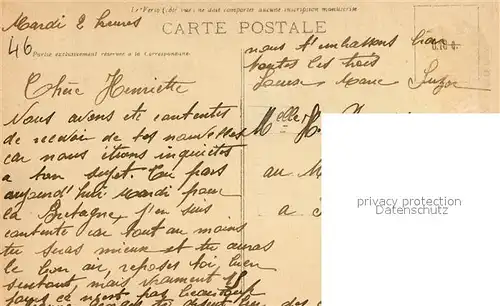 Le Verso (côté vue) ne doit comporter aucune inscription manuscrite
Mardi 2 heures
CARTE POSTALE
46
Partie exclusivement réservée à la Correspondance.
nous t'embrassons bien
toutes les trois
Louise Marie Suzon
Chère Henriette
Nous avons été contentes
de recevoir de tes nouvelles
car nous étions inquiètes
a ton sujet. Tu pars
aujourd'hui Mardi pour
la Bretagne j'en suis
contente car tout au moins
tu seras mieux et tu auras
le bon air, reposes toi bien
surtout, mais vraiment
jours ce n'est pas beaucoup
Melle
au
a
privacy protection
Datenschutz